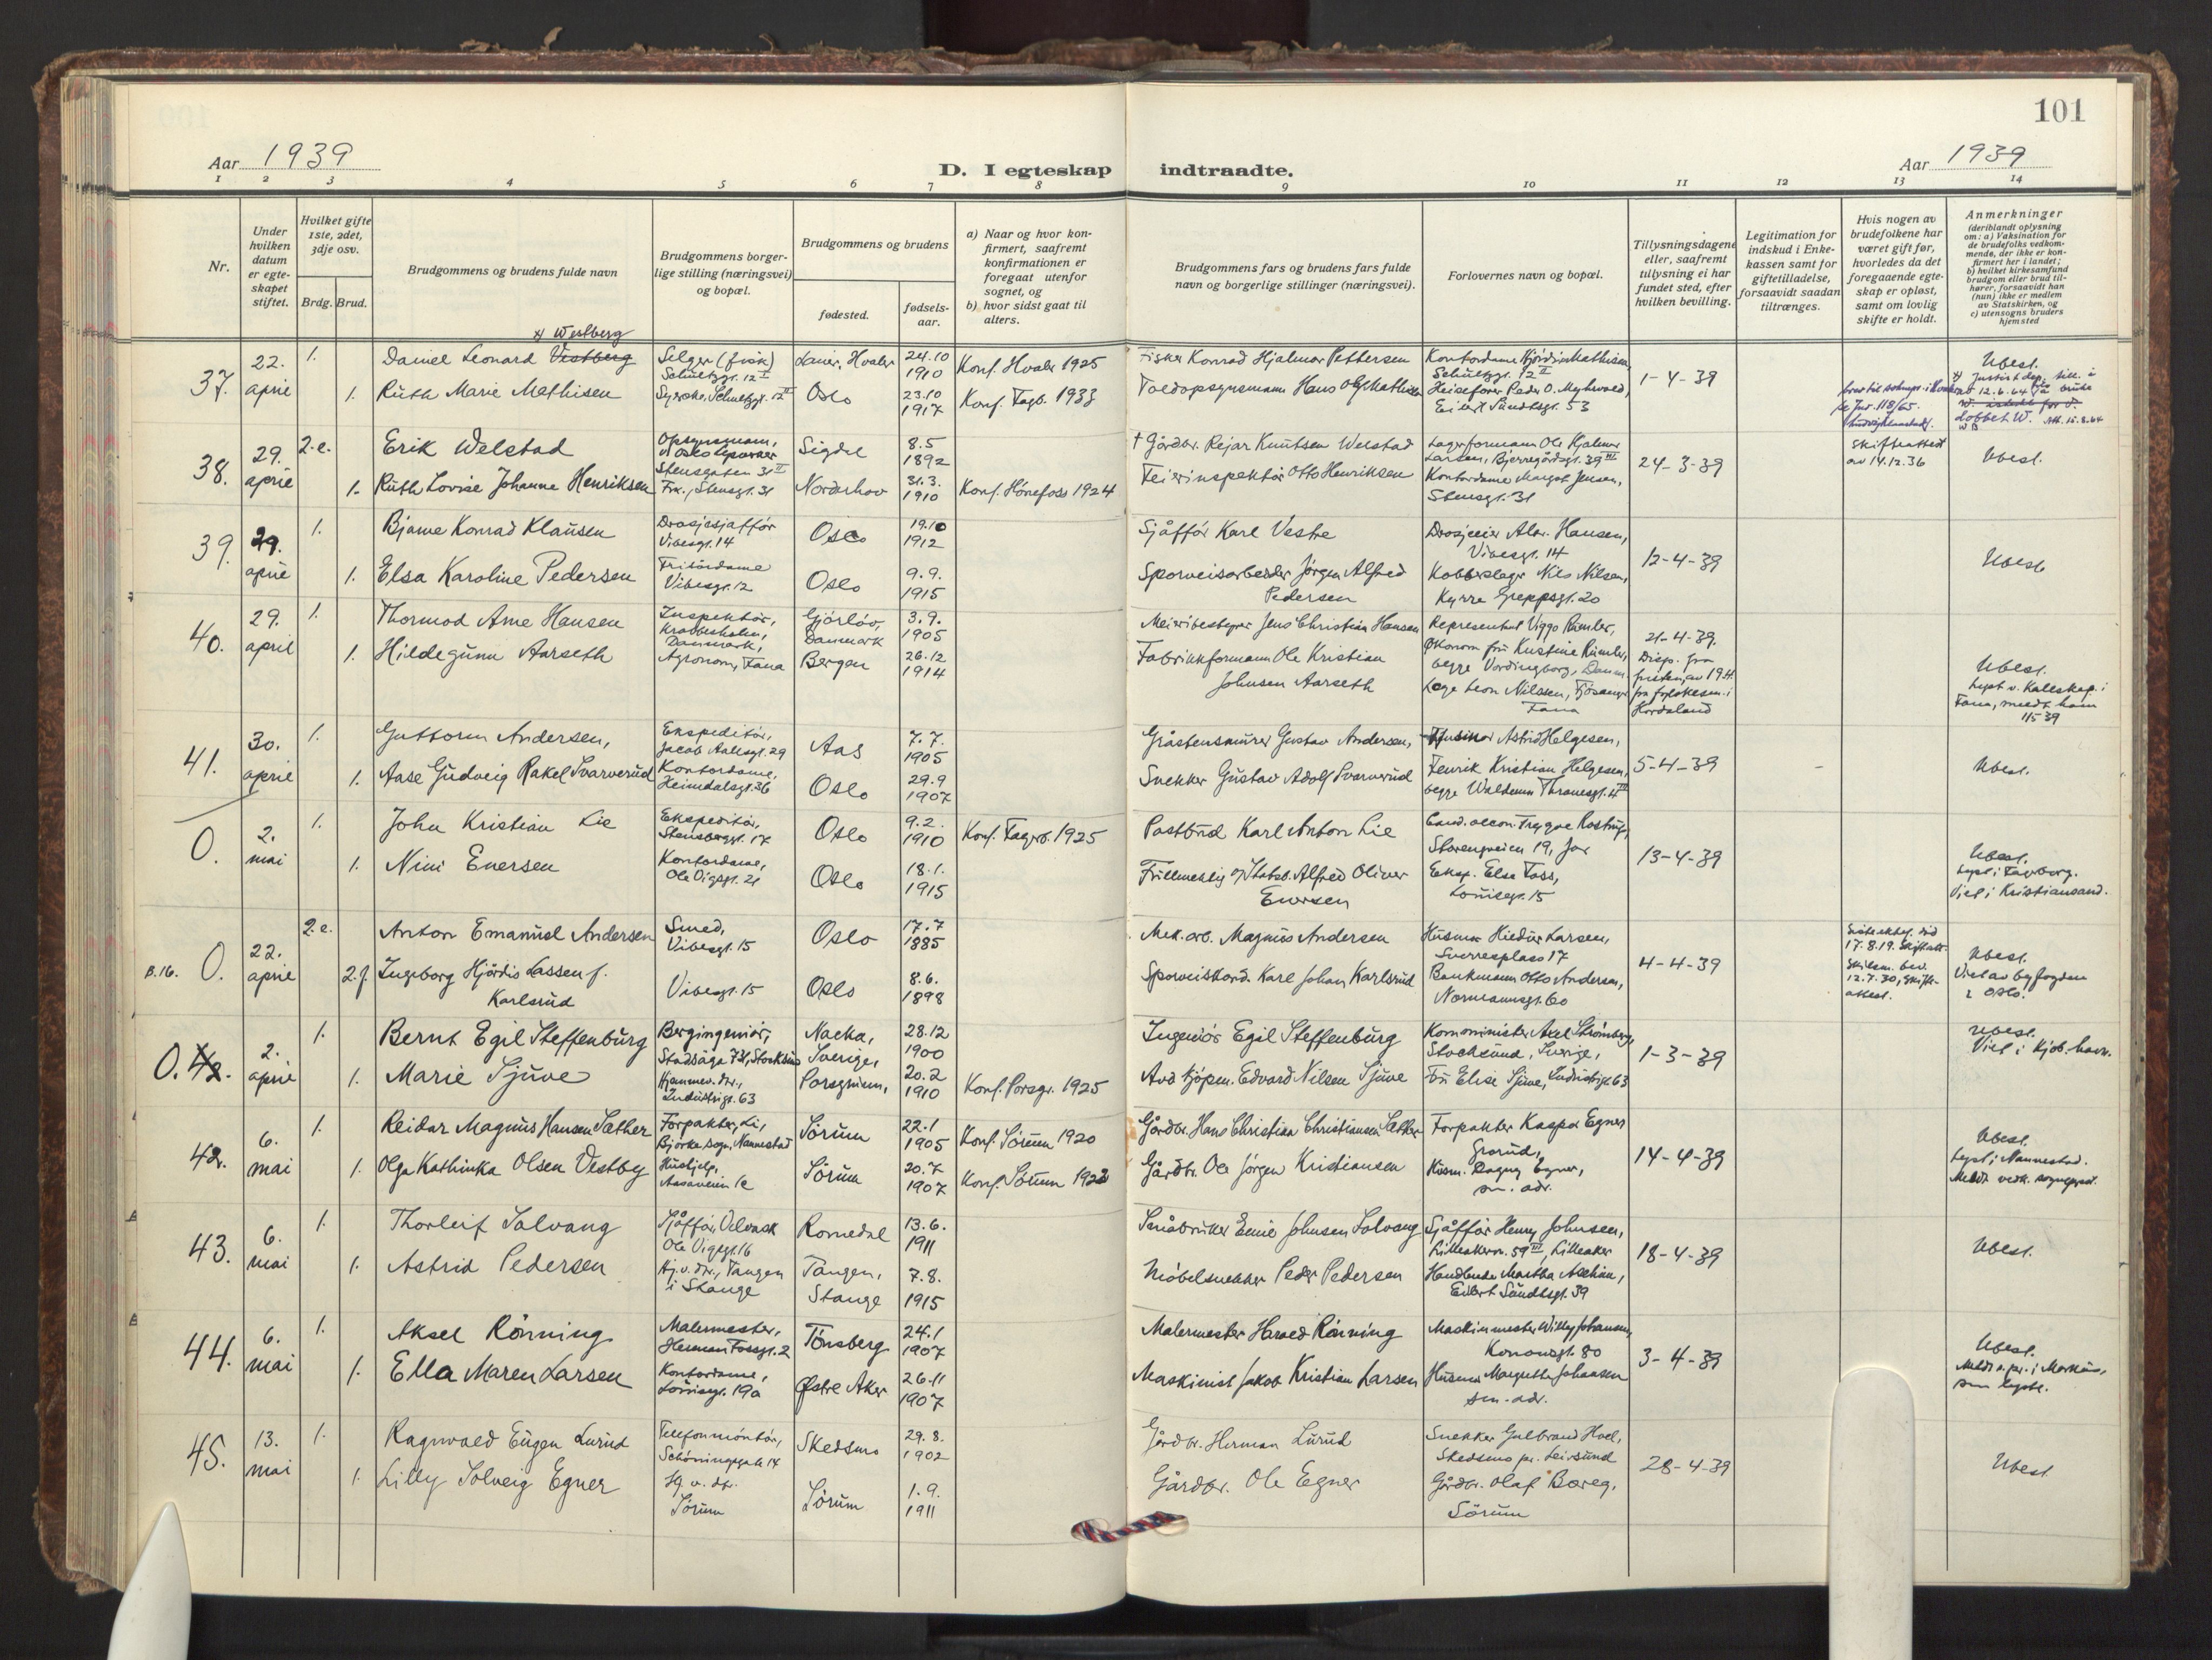 101
Aar 1939
D. I egteskap indtraadte.
Aar 1939
1 2 3 4 5 6 7 8 9 10 11 12 13 14
Nr.
Under hvilken datum er egteskapet stiftet.
Hvilket gifte 1ste, 2det, 3dje osv.
Brdg. Brud.
Brudgommens og brudens fulde navn
Brudgommens borgerlige stilling (næringsvei) og bopæl.
Brudgommens og brudens
fødested.
fødselsaar.
a) Naar og hvor konfirmert, saafremt konfirmationen er foregaat utenfor sognet, og
b) hvor sidst gaat til alters.
Brudgommens fars og brudens fars fulde navn og borgerlige stillinger (næringsvei).
Forlovernes navn og bopæl.
Tillysningsdagene eller, saafremt tillysning ei har fundet sted, efter hvilken bevilling.
Legitimation for indskud i Enkekassen samt for giftetilladelse, forsaavidt saadan tiltrænges.
Hvis nogen av brudefolkene har været gift før, hvorledes da det foregaaende egteskap er opløst, samt om lovlig skifte er holdt.
Anmerkninger
(deriblandt oplysning om: a) Vaksination for de brudefolks vedkommende, der ikke er konfirmert her i landet; b) hvilket kirkesamfund brudgom eller brud tilhører, forsaavidt han (hun) ikke er medlem av Statskirken, og c) utensogns bruders hjemsted
x) Westberg
37. 22. april 1. Daniel Leonard Vestberg Selger (fisk) Schultzgt. 12 I Lauer, Hvaler 24.10 1910 Konf. Hvaler 1925 Fisker Konrad Hjalmar Pettersen Kontordame Hjördis Mathisen, Schultzgt. 12 II 1-4-39 Ubest.
1. Ruth Marie Mathisen Syerske, Schultzgt. 12 II Oslo 23.10 1917 Konf. Fagb. 1933 Toldopsynsmann Hans Olaf Mathisen Heisefører Peder O. Myhrvold, Eilert Sundtsgt. 53
Dobbelt W.
38. 29. april 2.e. Erik Welstad Opsynsmann, Oslo Sporveier Stensgaten 31 II Sigdal 8.5 1892 † Gårdbr. Reiar Knutsen Welstad Lagerformann Ole Hjalmar Larsen, Bjerregårdsgt. 39 III 24-3-39 Skifteattest av 14.12.36 Ubest.
1. Ruth Lovise Johanne Henriksen Frk., Stensgt. 31 Norderhov 31.3. 1910 Konf. Hönefoss 1924 Feierinspektör Otto Henriksen Kontordame Margot Jensen, Stensgt. 31
39. 29. april 1. Bjarne Konrad Klausen Drosjesjåffør Vibesgt. 14 Oslo 19.10 1912 Sjåffør Karl Vestre Drosjeeier Alv. Hansen, Vibesgt. 14 12-4-39 Ubest.
1. Elsa Karoline Pedersen Frisördame Vibesgt. 12 Oslo 9.9. 1915 Sporveisarbeider Jörgen Alfred Pedersen Kobberslager Nils Nilsen, Kyrre Greppsgt. 20
40. 29. april 1. Thormod Arne Hansen Inspektör, Krabbesholm, Danmark, Gjörlöv, Danmark 3.9. 1905 Meieribestyrer Jens Christian Hansen Representant Viggo Rümler, 21-4-39.
1. Hildegunn Aarseth Agronom, Fana Bergen 26.12 1914 Fabrikkformann Ole Kristian Johnsen Aarseth Økonom frü Kristine Rümler, begge Vordingborg, Danm. Lege Leon Nilssen, Fjösanger Fana
Disp. fra fristen av 19/4 fra fylkesm. i Hordaland
Ubest. Lyst v. Kallskap. i Fana, meldt ham 1/5 39
41. 30. april 1. Guttorm Andersen, Ekspeditör, Jacob Aallsgt. 29 Aas 7.7. 1905 Gråstensmurer Gustav Andersen, Husmor Astrid Helgesen, 5-4-39 Ubest.
1. Aase Gudveig Rakel Svarverud Kontordame, Heimdalsgt. 36 Oslo 29.9 1907 Snekker Gustav Adolf Svarverud Fenrik Kristian Helgesen, begge Waldemar Thranesgt. 4 III
0. 2. mai 1. John Kristian Lie Ekspeditör, Stensberggt. 17 Oslo 9.2. 1910 Konf. Fagerb. 1925 Postbud Karl Anton Lie Cand. oecon. Trygve Rostrup, Storengveien 19, Jar 13-4-39
1. Nini Enersen Kontordame, Ole Vigsgt. 21 Oslo 18.1. 1915 Fullmektig Alfred Oliver Enersen Eksp. Else Foss, Louisesgt. 15
Ubest. Lyst i Fagerborg. Viet i Kristiansand.
B.16. 0. 22. april 2.e. Anton Emanuel Andersen Smed, Vibesgt. 15 Oslo 17.7 1885 Mek. arb. Magnus Andersen Husmor Hildur Larsen, Sverresplass 17 4-4-39
2.f. Ingeborg Hjördis Lassen f. Karlsrud Vibesgt. 15 Oslo 8.6. 1898 Sporveisbetj. Karl Johan Karlsrud Bankmann Otto Andersen, Normannsgt. 60
17.8.19. Skifteatt. Skilsm. bev. 12.7.30, Skifteattest.
Ubest. Viet av byfogden i Oslo.
0. 42. 2. april 1. Bernt Egil Steffenburg Bergingeniör, Stadsäga 731, Stocksund Nacka, Sverige, 28.12 1900 Ingeniör Egil Steffenburg Komminister Axel Strömberg, Stocksund, Sverige, 1-3-39
1. Marie Sjuve Hjemmev. dtr., Industrigt. 63 Porsgrunn, 20.2 1910 Konf. Porsgr. 1925 Avd kjöpm. Edvard Nilsen Sjuve Frü Elise Sjuve, Industrigt. 63
Ubest. Viet i Kjöb.havn.
42. 6. mai 1. Reidar Magnus Hansen Sæther Forpakter, Li, Bjerke sogn, Nannestad Sörum 22.1 1905 Konf. Sörum 1920 Gårdbr. Hans Christian Christiansen Sæther Forpakter Kaspar Egner Grorud, 14-4-39
1. Olga Kathinka Olsen Vestby Hushjelp, Aasaveien 1c Sörum 20.7 1907 Konf. Sörum 1922 Gårdbr. Ole Jörgen Kristiansen Husm. Dagny Egner, sm. adr.
Ubest. Lyst i Nannestad. Meldt vedk. sogneprest.
43. 6. mai 1. Thorleif Solvang Sjåffør, Ole Vigsgt. 16 Romedal 13.6. 1911 Småbruker Emil Johnsen Solvang Sjåffør Henry Johnsen, Lilleakerv. 59 III, Lilleaker 18-4-39 Ubest.
1. Astrid Pedersen Hj.v. dtr., Tangen i Stange Tangen, Stange 7.8. 1915 Möbelsnekker Peder Pedersen Handlende Martha Aschim, Eilert Sundtsgt. 39
44. 6. mai 1. Aksel Rönning Malermester, Herman Fossgt. 2 Tönsberg 24.1 1907 Malermester Harald Rönning Maskinmester Willy Johansen, Konowsgt. 80 3-4-39
1. Ella Maren Larsen Kontordame, Louisesgt. 19a Østre Aker 26.11 1907 Maskinist Jakob Kristian Larsen Husmor Margrethe Johansen sm. adr.
Ubest.
45. 13. mai 1. Ragnvald Eugen Lurud Telefonmontör, Schöningsgate 14 Skedsmo 29.8. 1902 Gårdbr. Herman Lurud Snekker Gulbrand Hoel, Skedsmo pr. Leirsund 28-4-39 Ubest
1. Lilly Solveig Egner Hj. v. dtr. Sörum Sörum 1.9. 1911 Gårdbr. Ole Egner Gårdbr. Olaf Boreg, Sörum